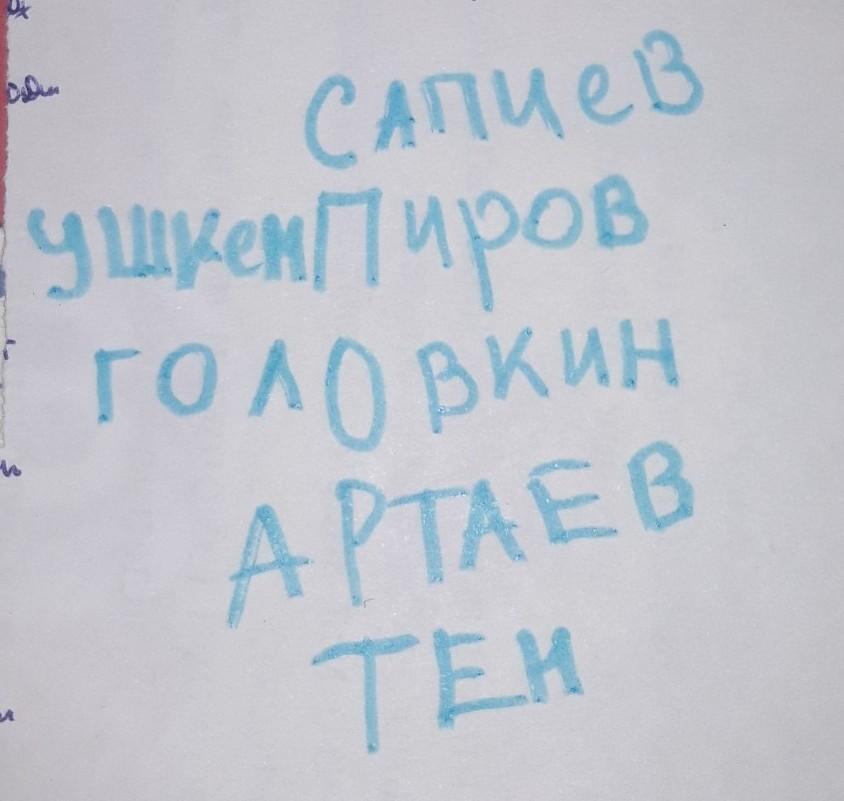 САПИеВ
УШКенПИРОВ
ГОЛОВКИН
АРТАЕВ
ТЕН